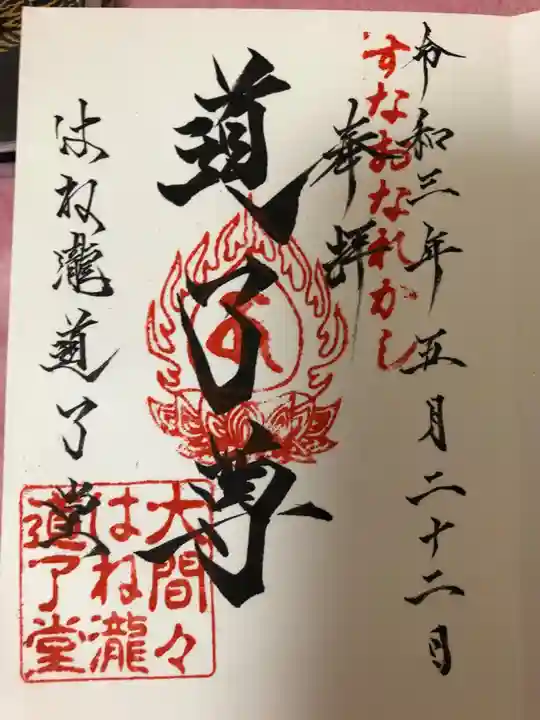 令和三年五月二十二日
すなおなれかし
奉拝
道了尊
はね瀧道了堂
大間々
はね瀧
道了堂